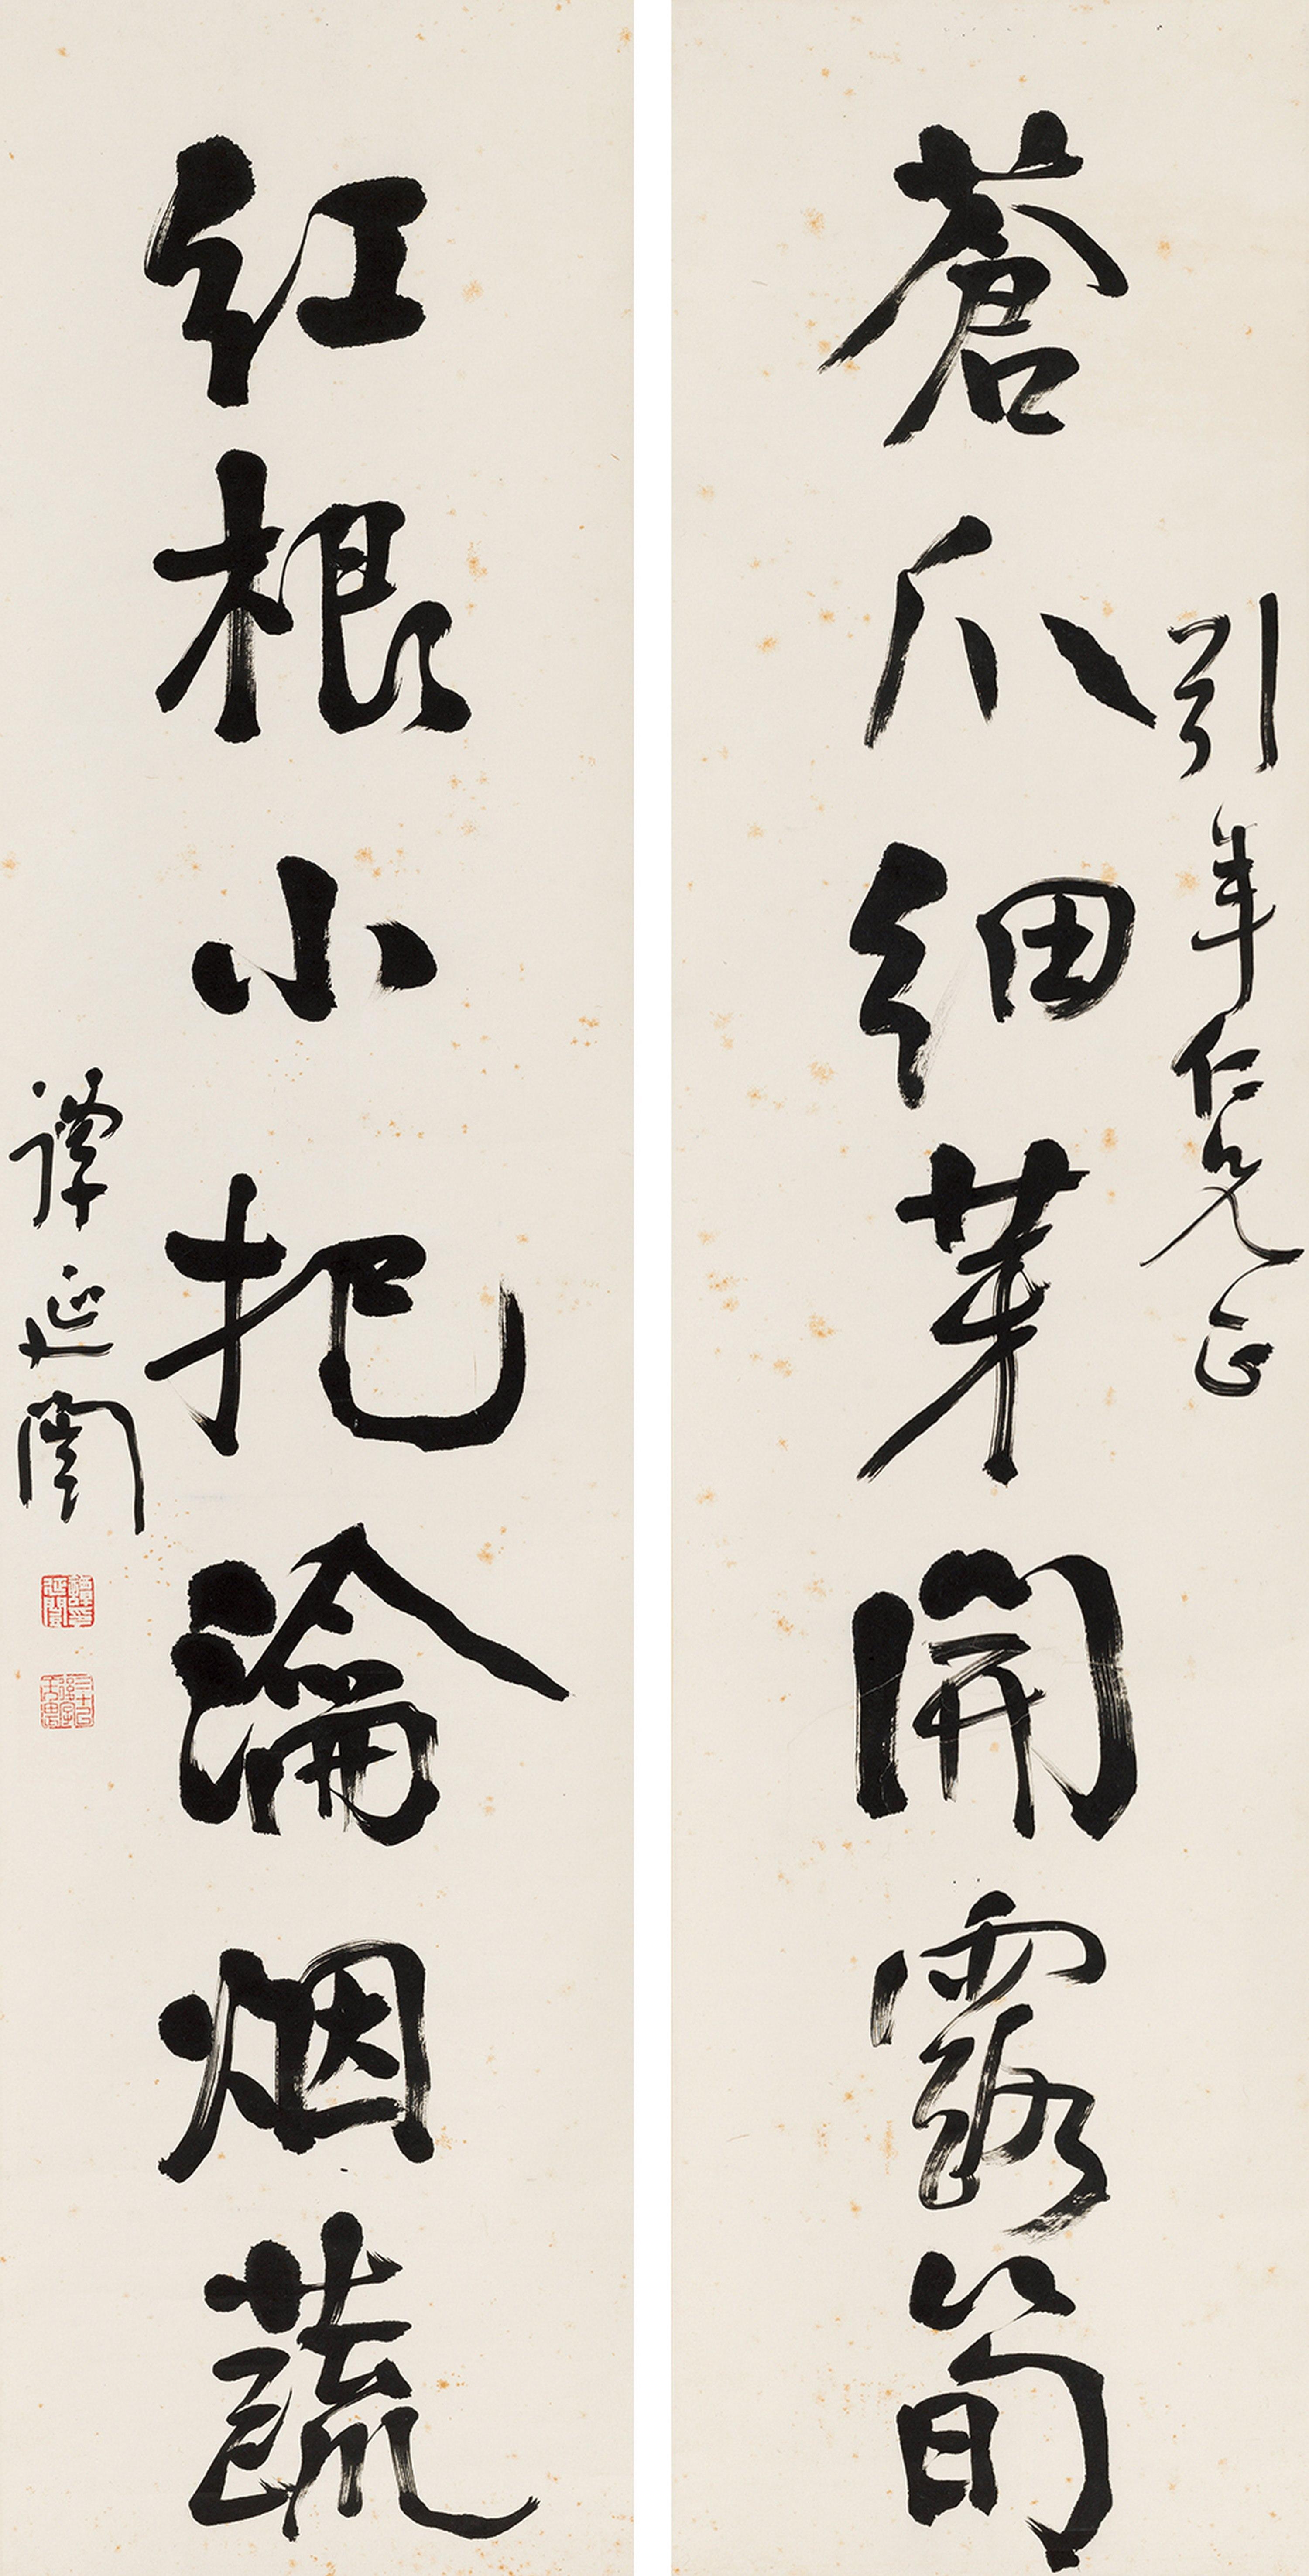 蒼爪細茅開露筍
引年仁兄正
紅根小把瀹烟蔬
譚延闓
譚延闓印